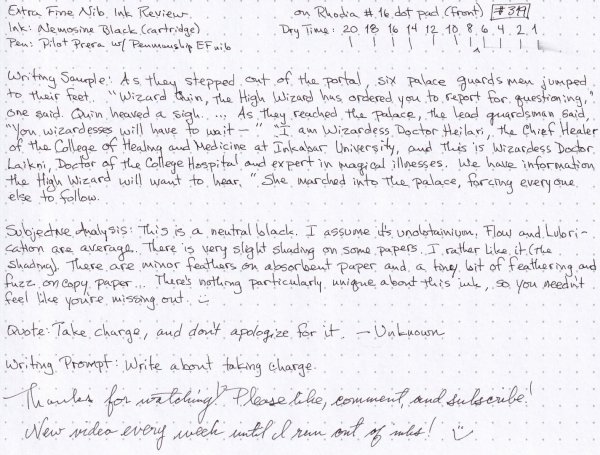 Extra Fine Nib Ink Review on Rhodia #16 dot pad (front) #319
Ink: Nemosine Black (cartridge) Dry Time: 20 18 16 14 12 10 8 6 4 2 1
Pen: Pilot Prera w/ Penmanship EF nib
Writing Sample: As they stepped out of the portal, six palace guardsmen jumped
to their feet. "Wizard Quin, the High Wizard has ordered you to report for questioning,"
one said. Quin heaved a sigh. ... As they reached the palace, the lead guardsman said,
"You wizardesses will have to wait—" "I am Wizardess Doctor Heilari, the Chief Healer
of the College of Healing and Medicine at Inkabar University, and this is Wizardess Doctor
Laikni, Doctor of the College Hospital and expert in magical illnesses. We have information
the High Wizard will want to hear." She marched into the palace, forcing everyone
else to follow.
Subjective Analysis: This is a neutral black. I assume it's unobtainium. Flow and Lubri-
cation are average. There is very slight shading on some papers. I rather like it (the
shading). There are minor feathers on absorbent paper and a tiny bit of feathering and
fuzz on copy paper... There's nothing particularly unique about this ink, so you needn't
feel like you're missing out. :)
Quote: Take charge, and don't apologize for it. — Unknown
Writing Prompt: Write about taking charge.
Thanks for watching! Please like, comment, and subscribe!
New video every week until I run out of inks! :)